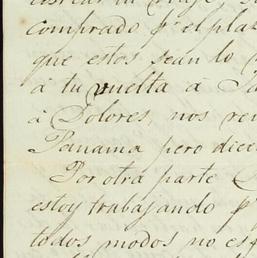 comprado pr el pla
que estos sean lo
á tu vuelta á
á Dolores, nos
Panama pero dice
Por otra parte
estoy trabajando pr
todos modos no es